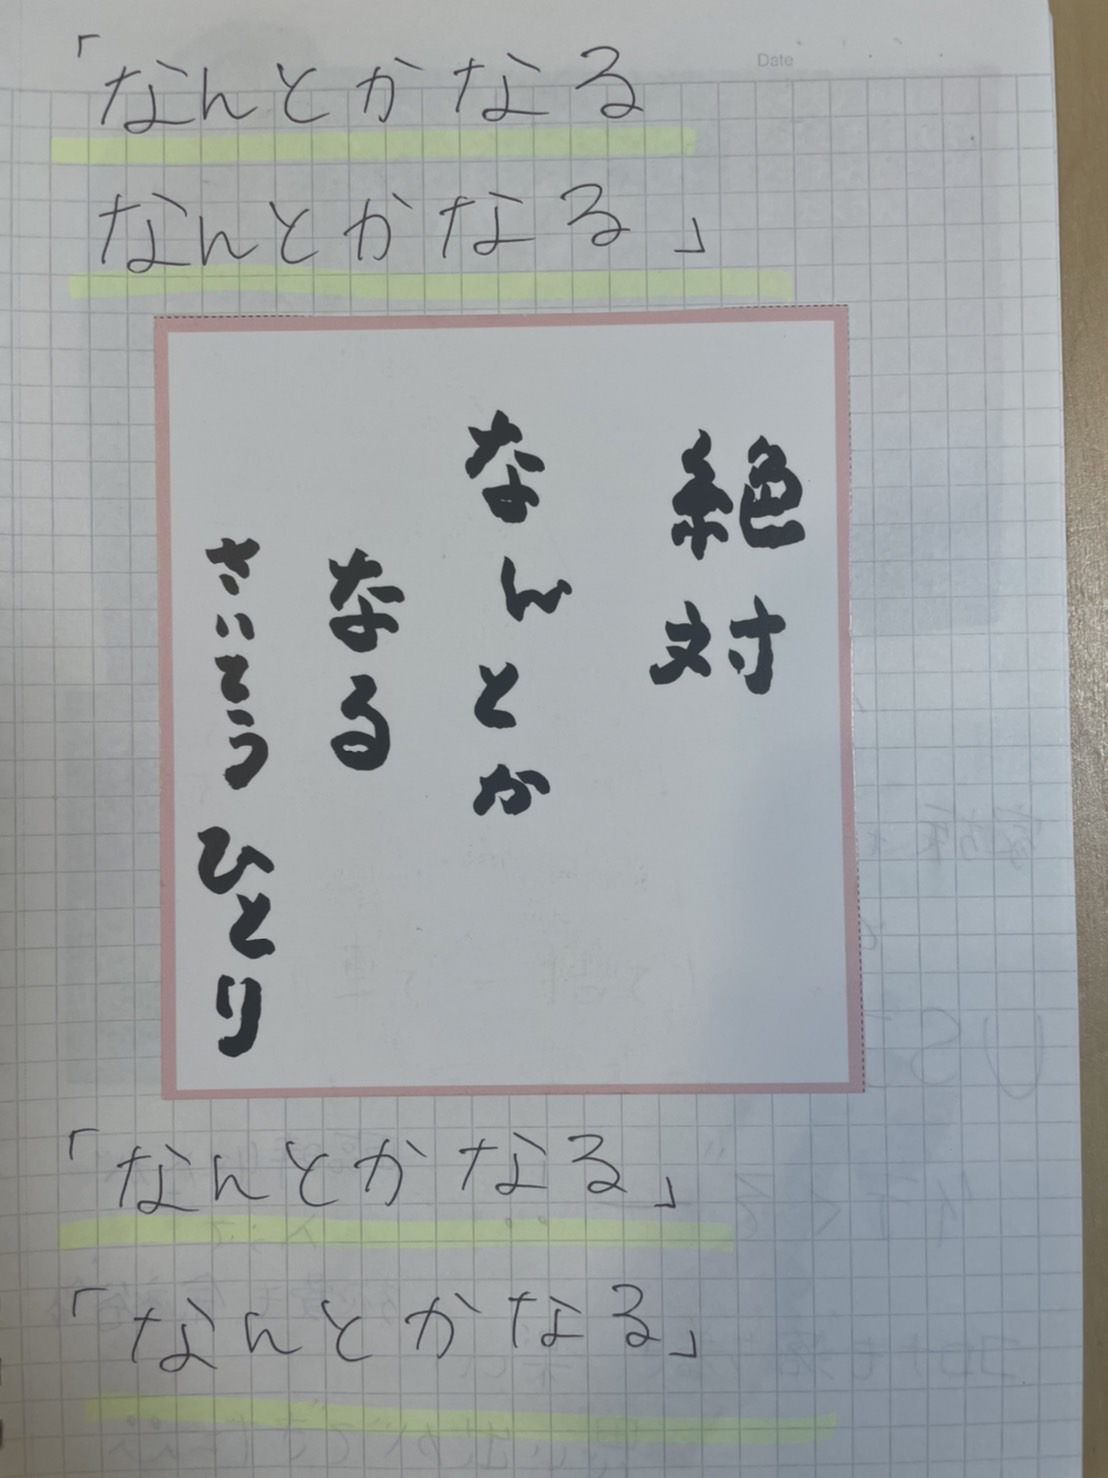 Date
「なんとかなる
なんとかなる」
絶対
なんとか
なる
さいとうひとり
「なんとかなる」
「なんとかなる」